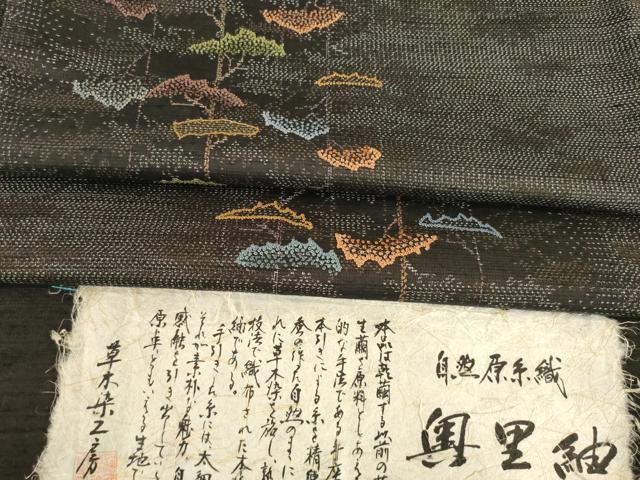 自然原糸織
奥里紬
本品は乾繭する以前の
生繭を原料とする
的な手法である手座
本引きによる糸を精
蚕の作った自然のまに
れに草木染を施し
技法で織布された本
紬である。
手引き糸には太
それが素朴な魅力
感触を引き出してい
原点ともいえる生地で
草木染工房